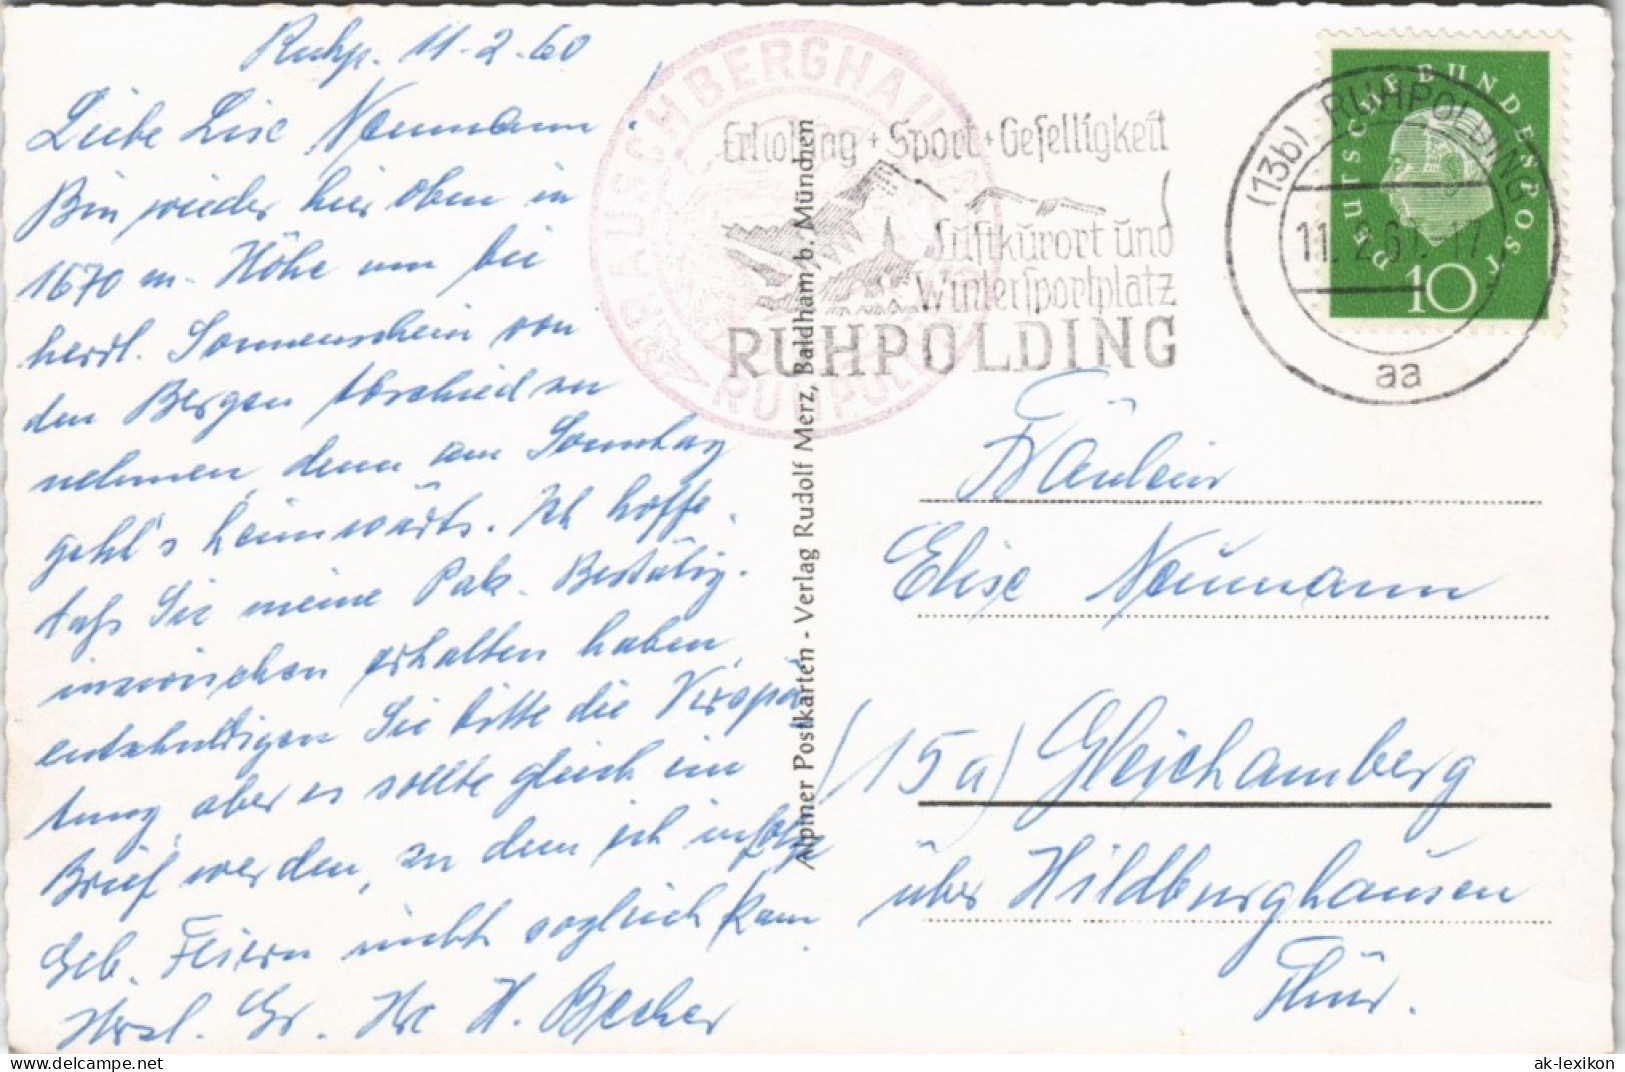 Ruhp. 11.2.60
Liebe Lise Neumann!
Bin wieder hier oben in
1670 m. Höhe um bei
herrl. Sonnenschein von
den Bergen Abschied zu
nehmen, denn am Sonntag
geht's heimwärts. Ich hoffe,
daß Sie meine Pak. Bestätig.
inzwischen erhalten haben,
entschuldigen Sie bitte die
tung, aber es sollte gleich ein
Brief werden, zu dem ich infolge
Geb. Feiern nicht sogleich kam.
Herzl. Gr. Ihre H. Becher
Alpiner Postkarten - Verlag Rudolf Merz, Baldham b. München
RAUSCHBERGHAUS
RUHPOLDING
Erholung + Sport + Geselligkeit
Luftkurort und
Wintersportplatz
RUHPOLDING
(13b) RUHPOLDING
11. 2. 60. 17
aa
DEUTSCHE BUNDESPOST
10
Fräulein
Elise Neumann
(15a) Gleichamberg
über Hildburghausen
Thür.
https://www.delcampe.net
ak-lexikon